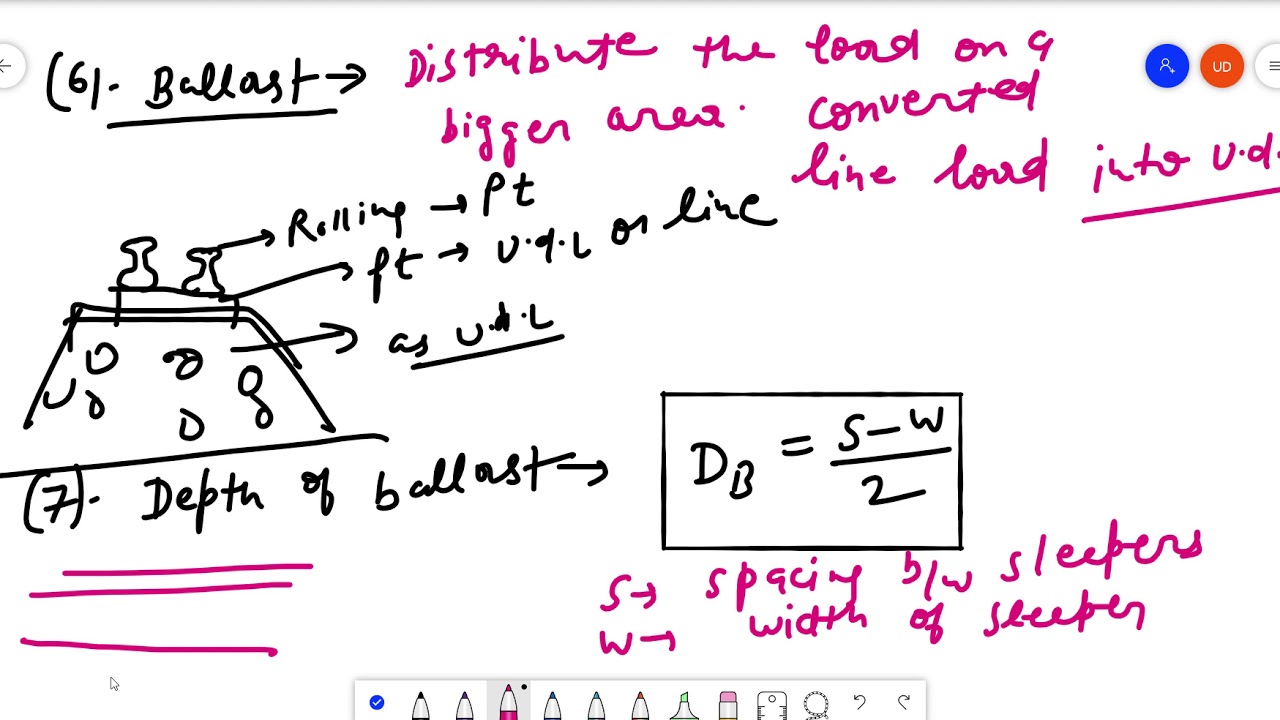 (6). Ballast → Distribute the load on a
bigger area. converted
line load into U.d.
Rolling → pt
pt → U.d.L or line
as U.d.L
(7). Depth of ballast →
D_B = S-W/2
S→ spacing b/w sleepers
W→ width of sleeper
UD